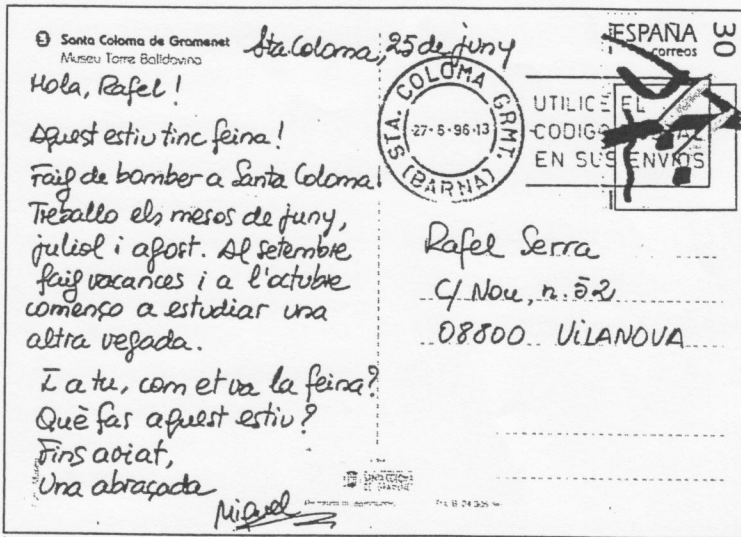 Santa Coloma de Gramenet
Museu Torre Balldovina
Sta Coloma, 25 de juny
Hola, Rafel!
Aquest estiu tinc feina!
Faig de bomber a Santa Coloma!
Treballo els mesos de juny,
juliol i agost. Al setembre
faig vacances i a l'octubre
començo a estudiar una
altra vegada.
I a tu, com et va la feina?
Què fas aquest estiu?
Fins aviat,
Una abraçada
Miquel
STA. COLOMA GRMT.
27-6-96-13
(BARNA)
UTILICE EL
CODIGO
EN SUS ENVIOS
ESPAÑA
correos
30
Rafel Serra
C/ Nou, n. 52
08800 VILANOVA
SANTA COLOMA